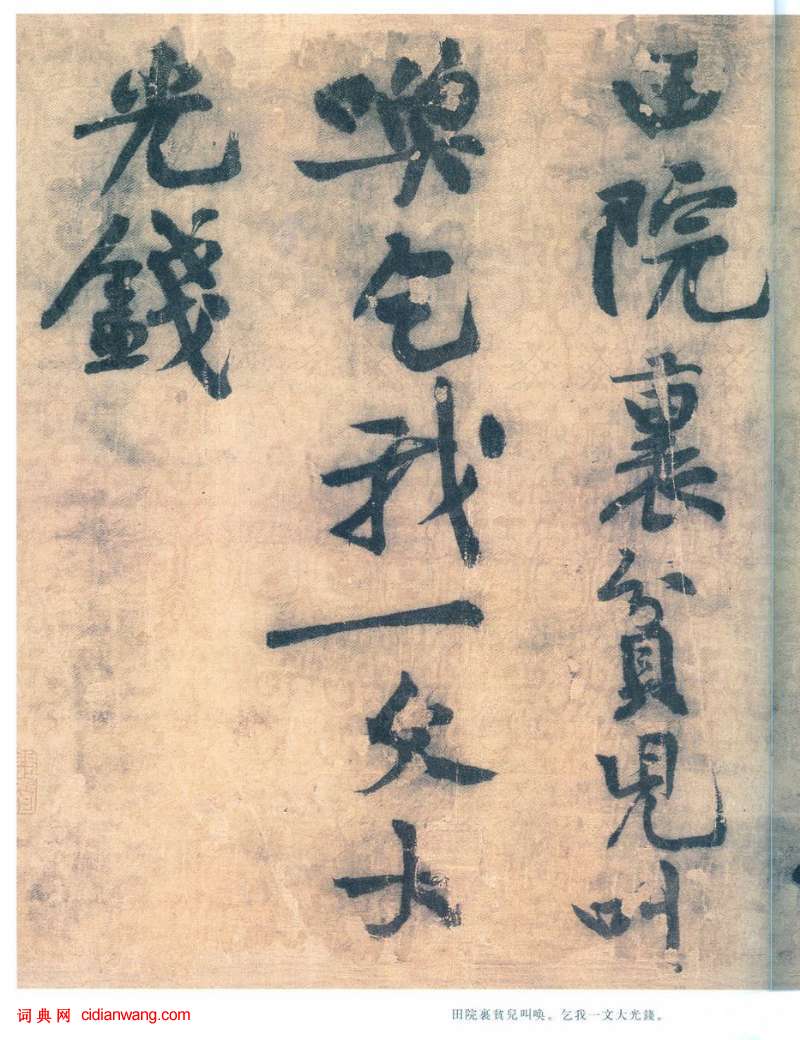 田院裏貧兒叫
喚乞我一文大
光錢
田院裏貧兒叫喚。乞我一文大光錢。
词典网 cidianwang.com